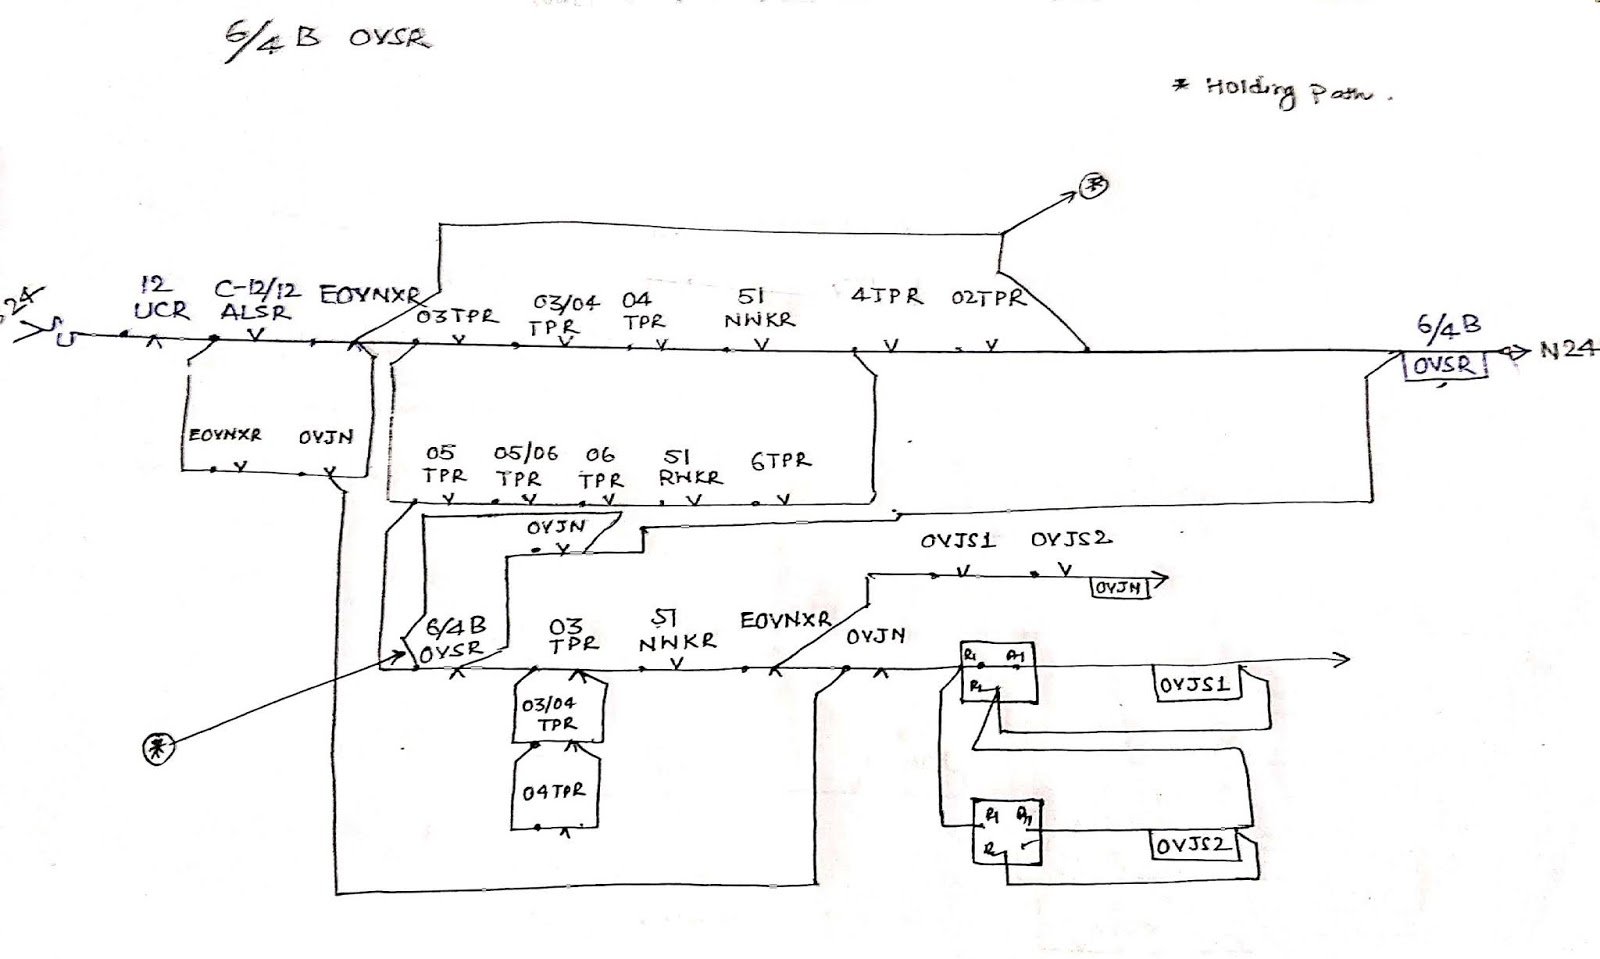 6/4B OVSR
* Holding Path.
*
12 UCR
C-12/12 ALSR
EOVNXR
03TPR
03/04 TPR
04 TPR
51 NWKR
4TPR
02TPR
6/4B
OVSR
N24
EOVNXR
OVJN
05 TPR
05/06 TPR
06 TPR
51 RWKR
6TPR
OVJN
OVJS1
OVJS2
OVJN
6/4B OVSR
03 TPR
51 NWKR
EOVNXR
OVJN
R1
R2
OVJS1
03/04 TPR
*
04TPR
R1
OVJS2